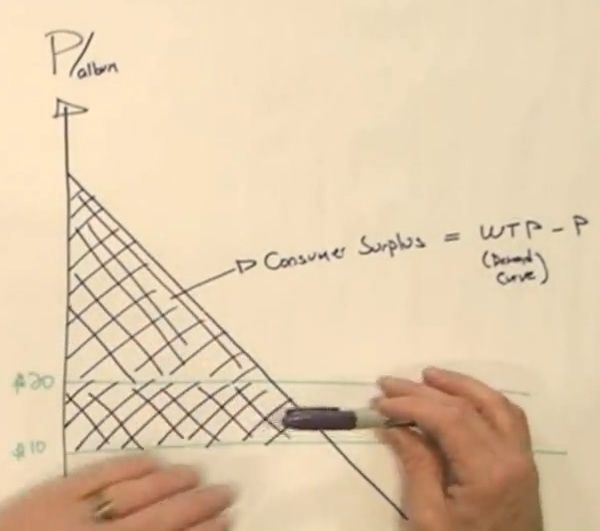 P/album
Consumer Surplus = WTP - P
(Demand
Curve)
$20
$10